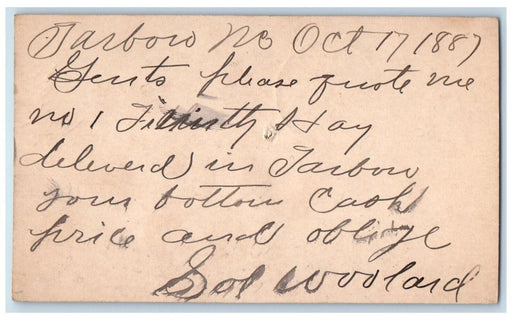 Tarboro NC Oct 17 1887
Gents please quote me
no 1 Timoth Hay
delieverd in Tarboro
your bottom Cash
price and oblige
Sol Woolard